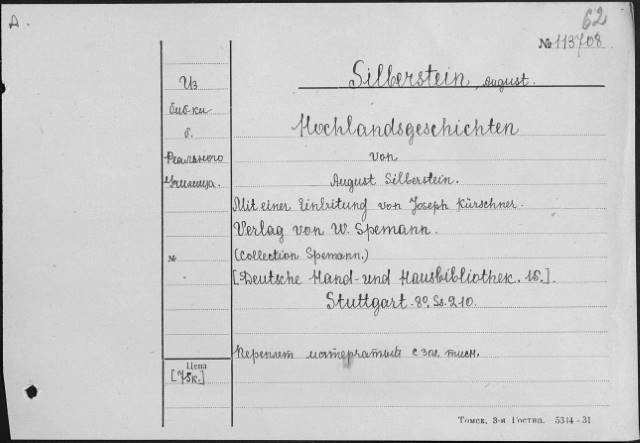 А.
62
№ 113708
Silberstein, August.
Из
биб-ки
б.
Реального
Училища.
Hochlandsgeschichten
von
August Silberstein.
Mit einer Einleitung von Joseph Kürschner.
Verlag von W. Spemann.
№
(Collection Spemann.)
[Deutsche Hand- und Hausbibliothek. 16.].
Stuttgart. 8º. Ss. 210.
Переплет матерчатый с зол. тисн.
Цена
[75к.]
Томск. 3-я Гостип. 5344-31